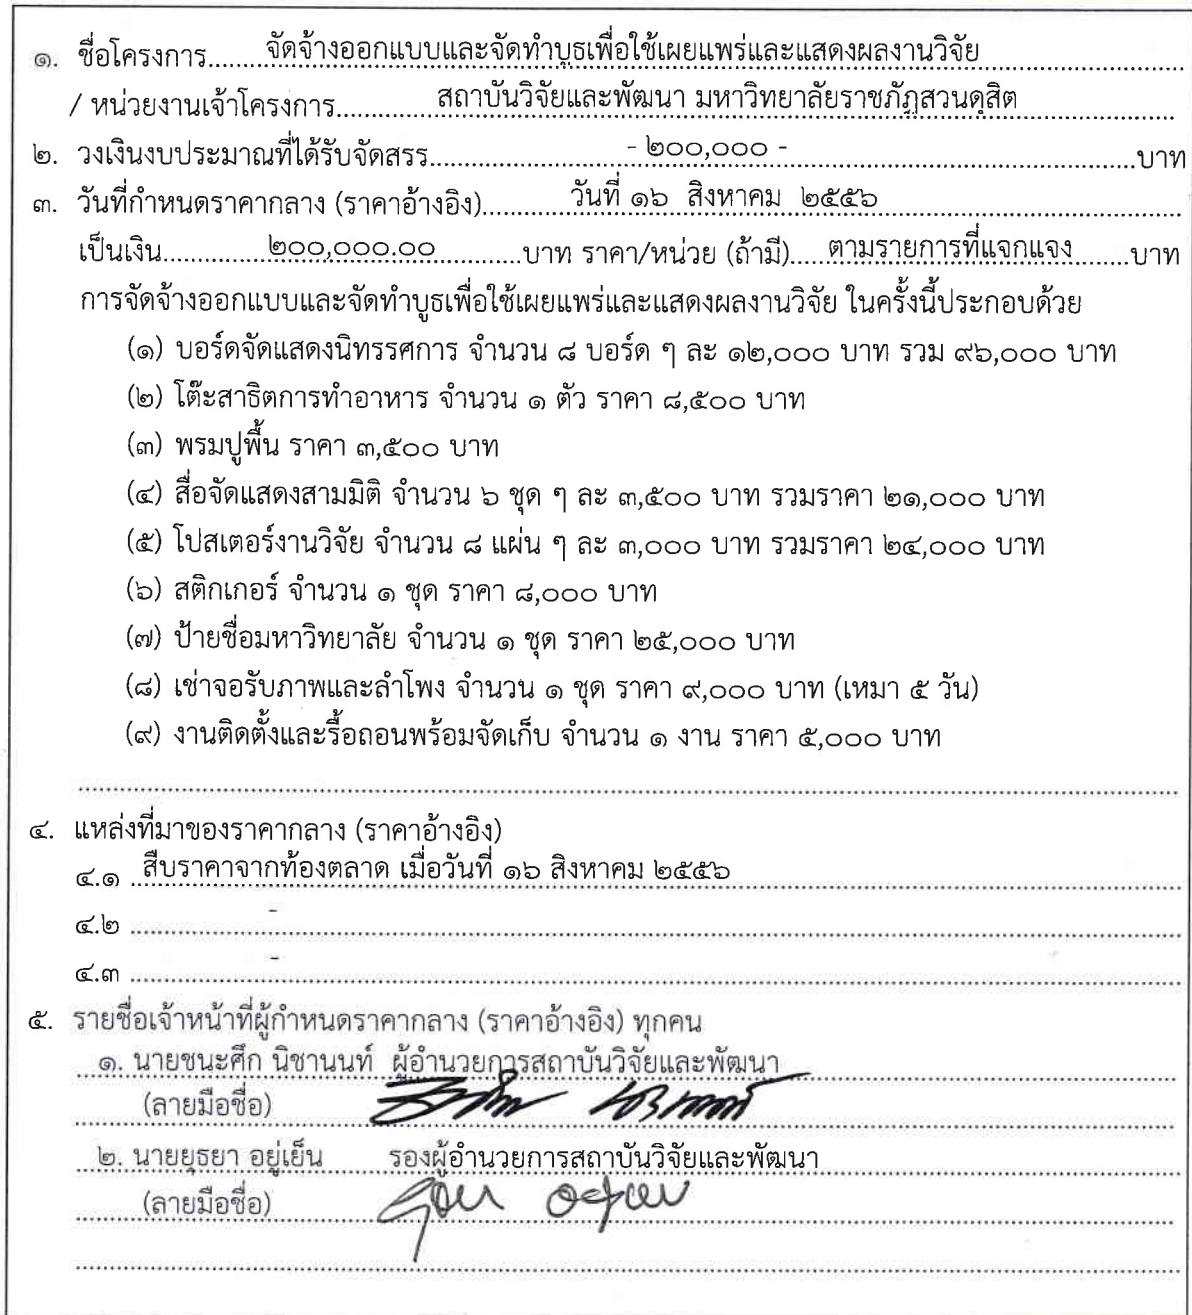 ๑. ชื่อโครงการ.........จัดจ้างออกแบบและจัดทำบูธเพื่อใช้เผยแพร่และแสดงผลงานวิจัย
/ หน่วยงานเจ้าโครงการ.............สถาบันวิจัยและพัฒนา มหาวิทยาลัยราชภัฏสวนดุสิต
๒. วงเงินงบประมาณที่ได้รับจัดสรร.............- ๒๐๐,๐๐๐ -.............บาท
๓. วันที่กำหนดราคากลาง (ราคาอ้างอิง).............วันที่ ๑๖ สิงหาคม ๒๕๕๖
เป็นเงิน.............๒๐๐,๐๐๐.๐๐.............บาท ราคา/หน่วย (ถ้ามี).....ตามรายการที่แจกแจง........บาท
การจัดจ้างออกแบบและจัดทำบูธเพื่อใช้เผยแพร่และแสดงผลงานวิจัย ในครั้งนี้ประกอบด้วย
(๑) บอร์ดจัดแสดงนิทรรศการ จำนวน ๘ บอร์ด ๆ ละ ๑๒,๐๐๐ บาท รวม ๙๖,๐๐๐ บาท
(๒) โต๊ะสาธิตการทำอาหาร จำนวน ๑ ตัว ราคา ๘,๕๐๐ บาท
(๓) พรมปูพื้น ราคา ๓,๕๐๐ บาท
(๔) สื่อจัดแสดงสามมิติ จำนวน ๖ ชุด ๆ ละ ๓,๕๐๐ บาท รวมราคา ๒๑,๐๐๐ บาท
(๕) โปสเตอร์งานวิจัย จำนวน ๘ แผ่น ๆ ละ ๓,๐๐๐ บาท รวมราคา ๒๔,๐๐๐ บาท
(๖) สติกเกอร์ จำนวน ๑ ชุด ราคา ๘,๐๐๐ บาท
(๗) ป้ายชื่อมหาวิทยาลัย จำนวน ๑ ชุด ราคา ๒๕,๐๐๐ บาท
(๘) เช่าจอรับภาพและลำโพง จำนวน ๑ ชุด ราคา ๙,๐๐๐ บาท (เหมา ๕ วัน)
(๙) งานติดตั้งและรื้อถอนพร้อมจัดเก็บ จำนวน ๑ งาน ราคา ๕,๐๐๐ บาท
๔. แหล่งที่มาของราคากลาง (ราคาอ้างอิง)
๔.๑ สืบราคาจากท้องตลาด เมื่อวันที่ ๑๖ สิงหาคม ๒๕๕๖
๔.๒ -
๔.๓ -
๕. รายชื่อเจ้าหน้าที่ผู้กำหนดราคากลาง (ราคาอ้างอิง) ทุกคน
๑. นายชนะศึก นิชานนท์ ผู้อำนวยการสถาบันวิจัยและพัฒนา
(ลายมือชื่อ)
๒. นายยุธยา อยู่เย็น รองผู้อำนวยการสถาบันวิจัยและพัฒนา
(ลายมือชื่อ)